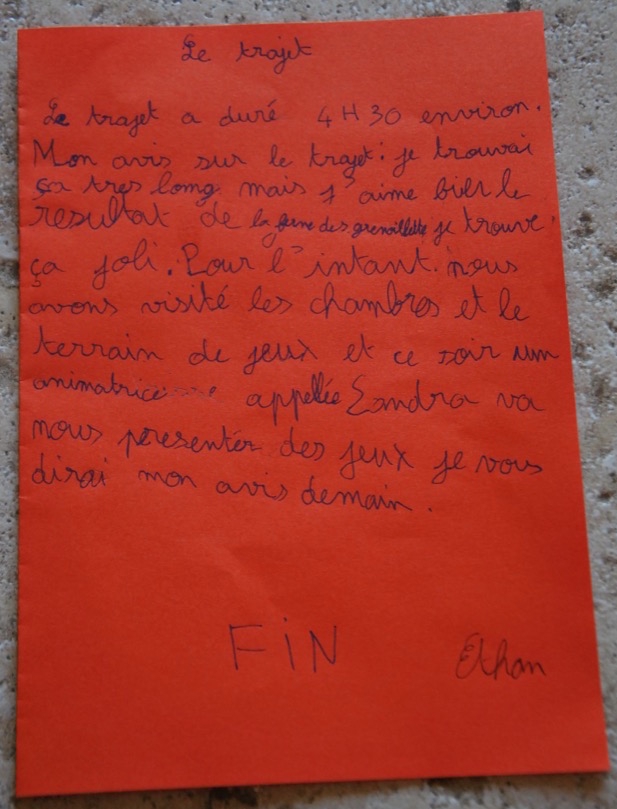 Le trajet
Le trajet a duré 4H30 environ.
Mon avis sur le trajet: je trouvai
ça tres long mais j'aime bien le
resultat de la ferme des grenouillette je trouve
ça joli. Pour l'intant nous
avons visité les chambres et le
terrain de jeux et ce soir un
animatrice appellée Sandra va
nous presenter des jeux je vous
dirai mon avis demain.
FiN
Ethan